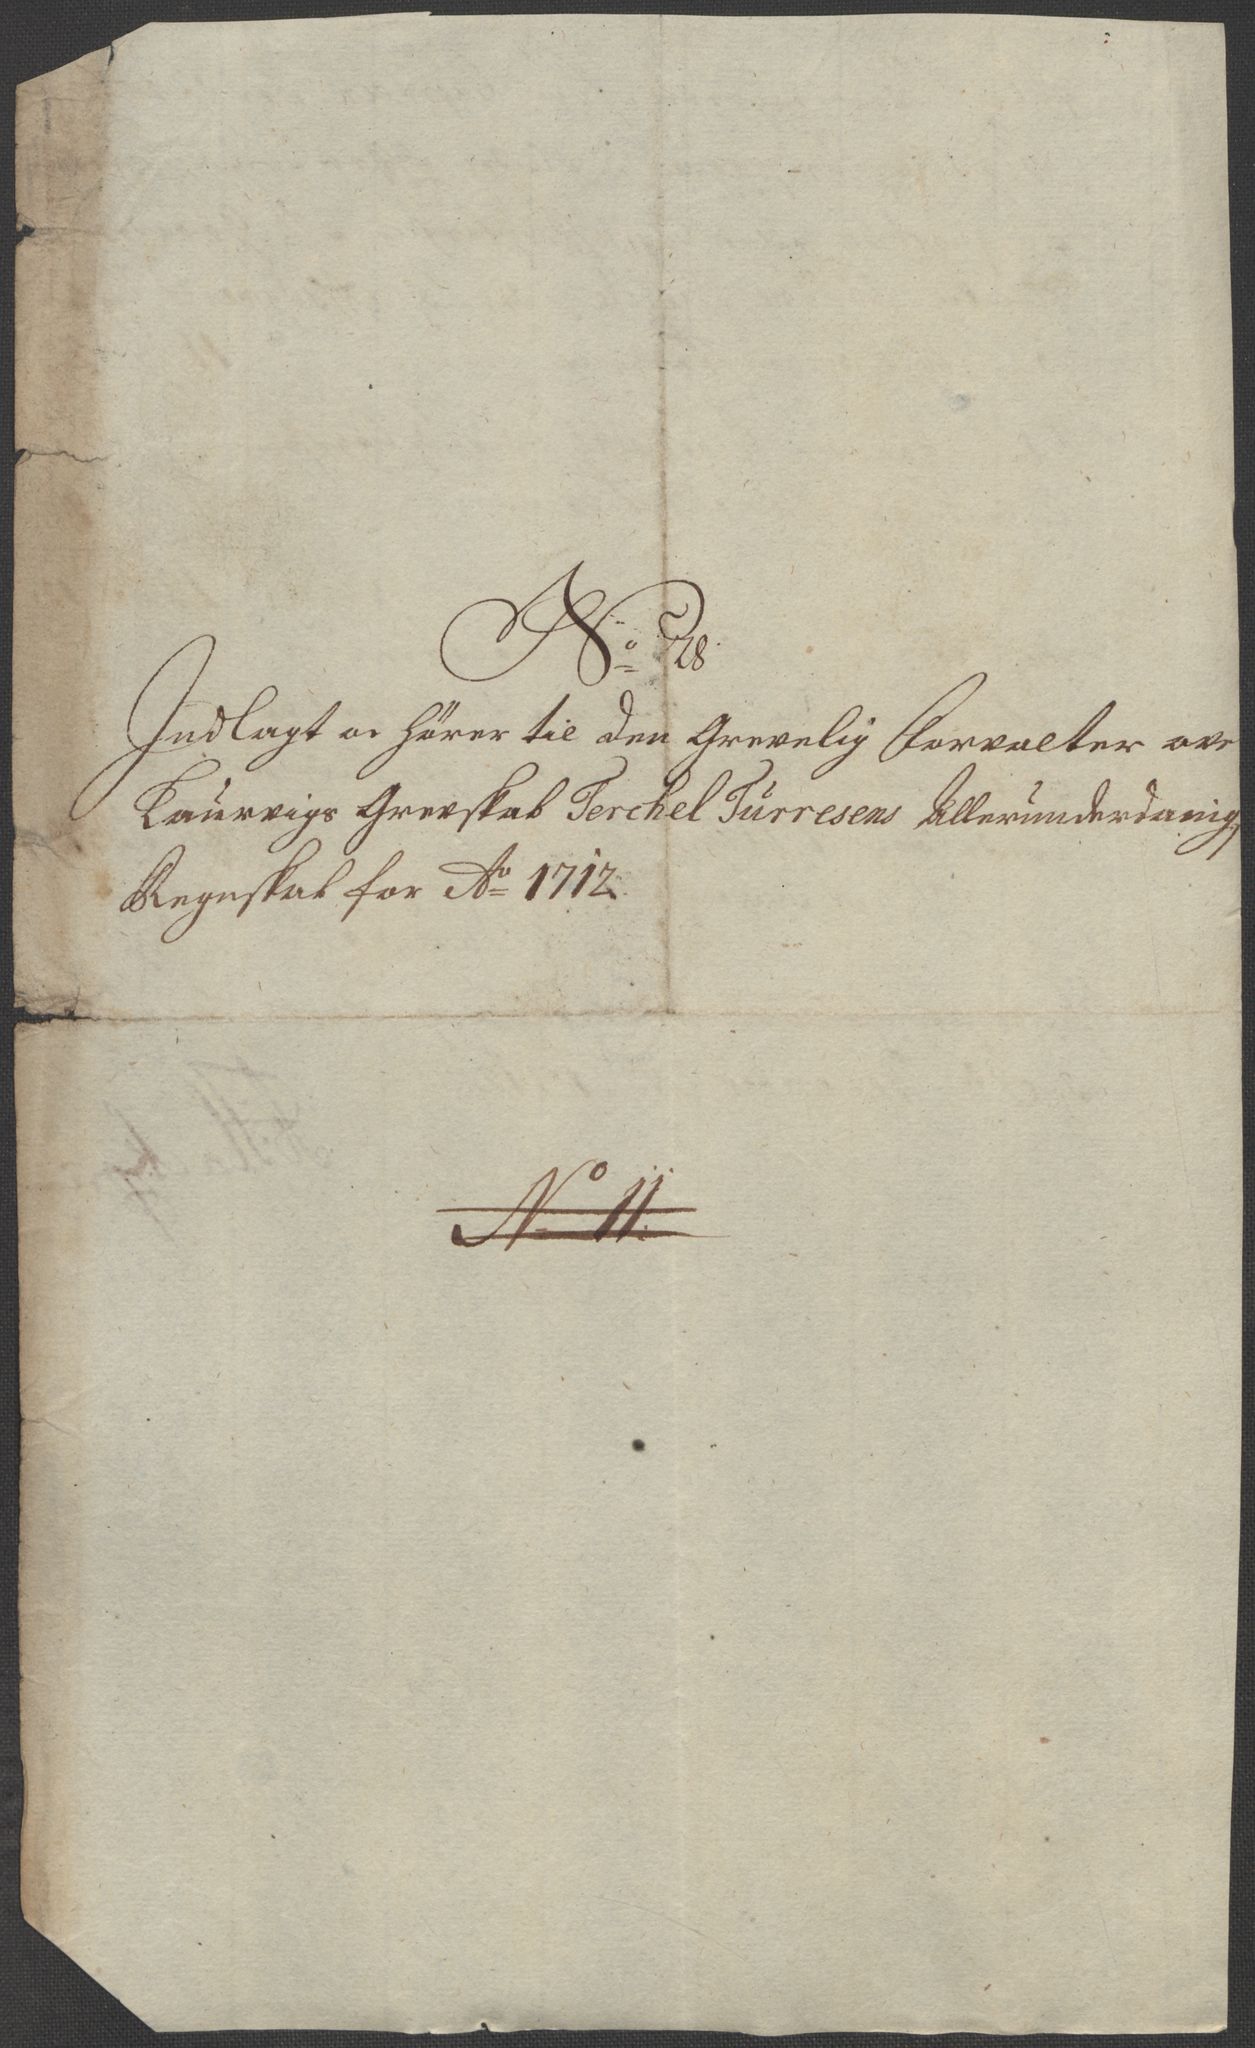 No 28
Indlagt oc hörer til den Grevelig Forvalter ove
Laurvigs Grevskab Terchel Türresens Allerunderdanig
Regnskab for Ao 1712
No 11